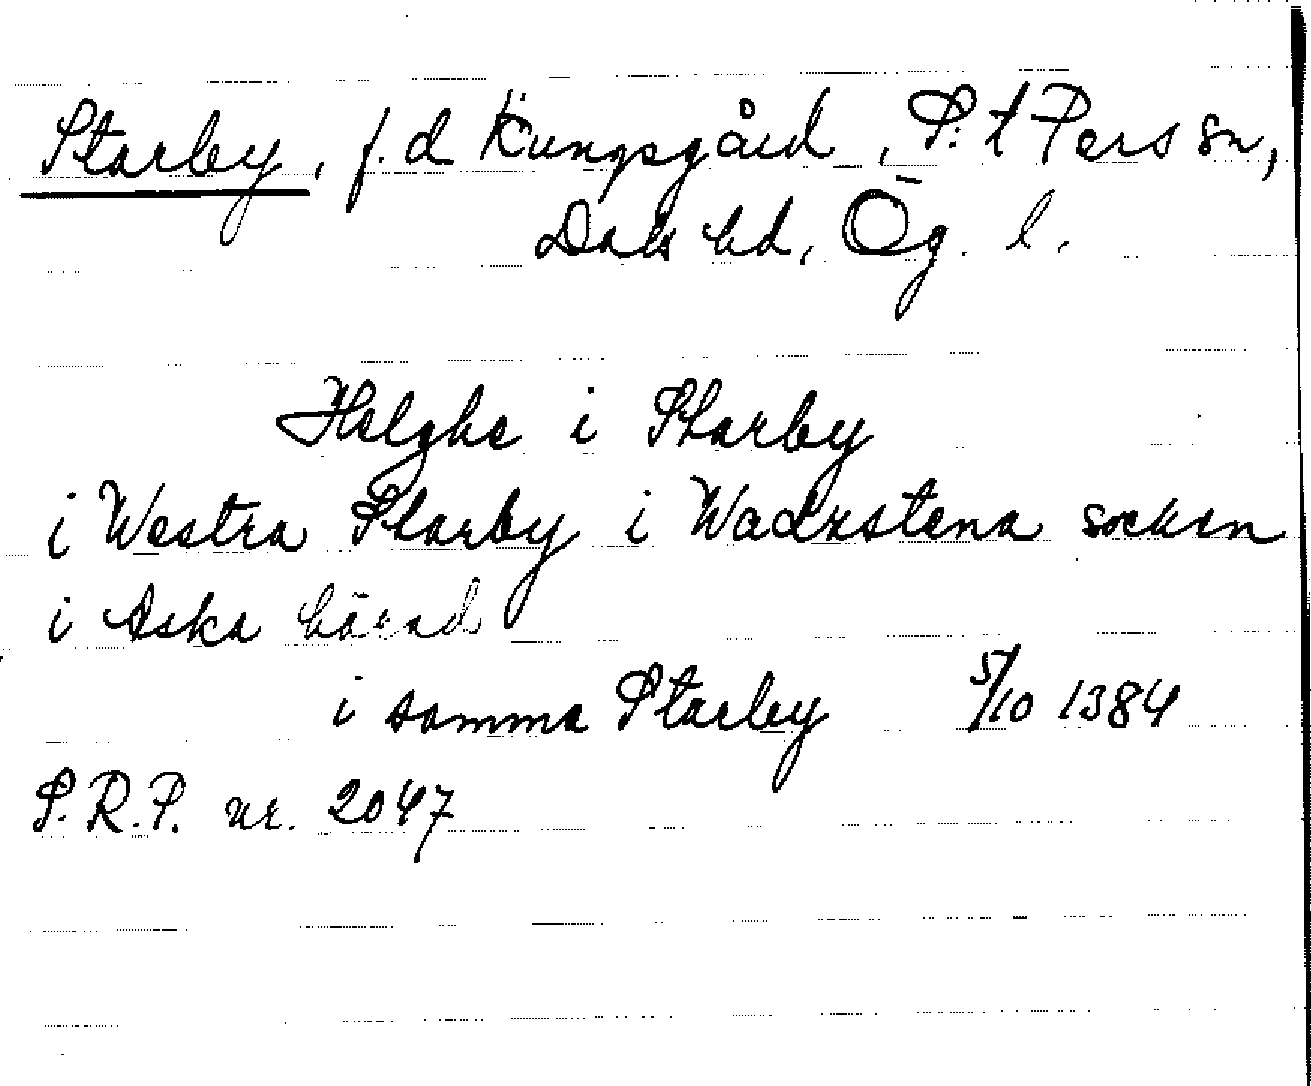 Starby, f.d Kungsgård, S:t Pers sn,
Dals hd, Ög. l.
Helghe i Starby
i Westra Starby i Wadzstena socken
i Aska härad
i samma Starby 5/10 1384
S.R.P. nr. 2047